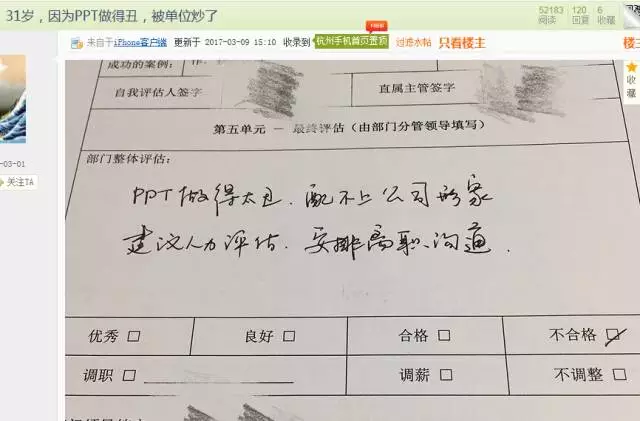 31岁，因为PPT做得丑，被单位炒了
52183 120 6
阅读 回复 收藏
来自于iPhone客户端 更新于 2017-03-09 15:10 收录到 杭州手机首页置顶 过滤水帖 只看楼主
楼主
收藏
-03-01
关注TA
成功的案例：
自我评估人签字 直属主管签字
第五单元 — 最终评估（由部门分管领导填写）
部门整体评估：
PPT做得太丑，配不上公司形象
建议人力评估，安排离职沟通.
优秀 □ 良好 □ 合格 □ 不合格 ☑
调职 □ 调薪 □ 不调整 □